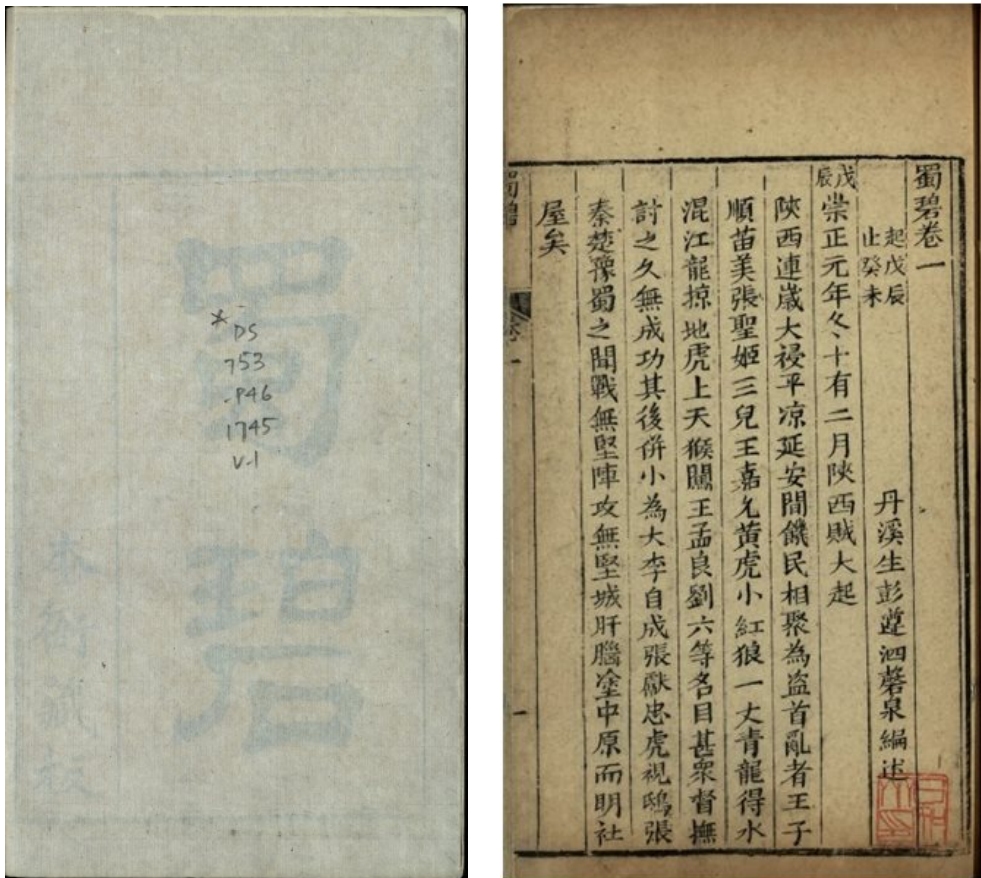 *
DS
753
.P46
1745
V.1
蜀碧
本衙藏板
蜀碧卷一
起戊辰
止癸未
丹溪生彭遵泗磬泉編述
戊辰
崇正元年冬十有二月陝西賊大起
陝西連歲大祲平凉延安間饑民相聚為盜首亂者王子
順苗美張聖姬三兒王嘉允黃虎小紅狼一丈青龍得水
混江龍掠地虎上天猴闖王孟良劉六等名目甚衆督撫
討之久無成功其後併小為大李自成張獻忠虎視鴟張
秦楚豫蜀之間戰無堅陣攻無堅城肝腦塗中原而明社
屋矣
蜀碧
卷一
一